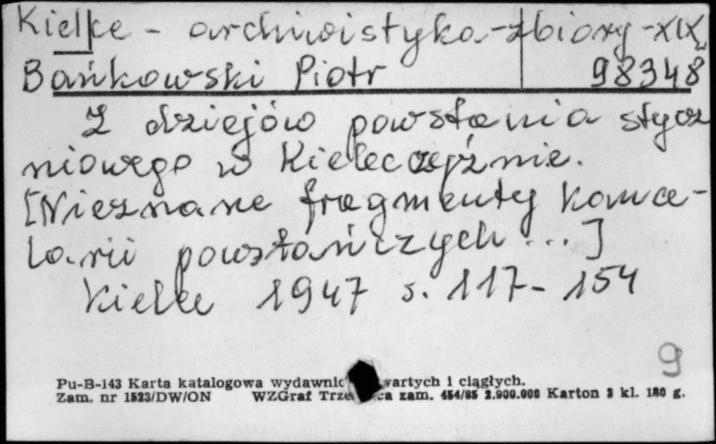 Kielce - archiwistyka - zbiory - XIX w
Bańkowski Piotr 98348
Z dziejów powstania stycz
niowego w Kielecczyźnie.
[Nieznane fragmenty kance-
larii powstańczych ...]
Kielce 1947 s. 117-154
9
Pu-B-143 Karta katalogowa wydawnic wartych i ciągłych.
Zam. nr 1523/DW/ON WZGraf Trze ca zam. 454/85 2.900.000 Karton 3 kl. 180 g.